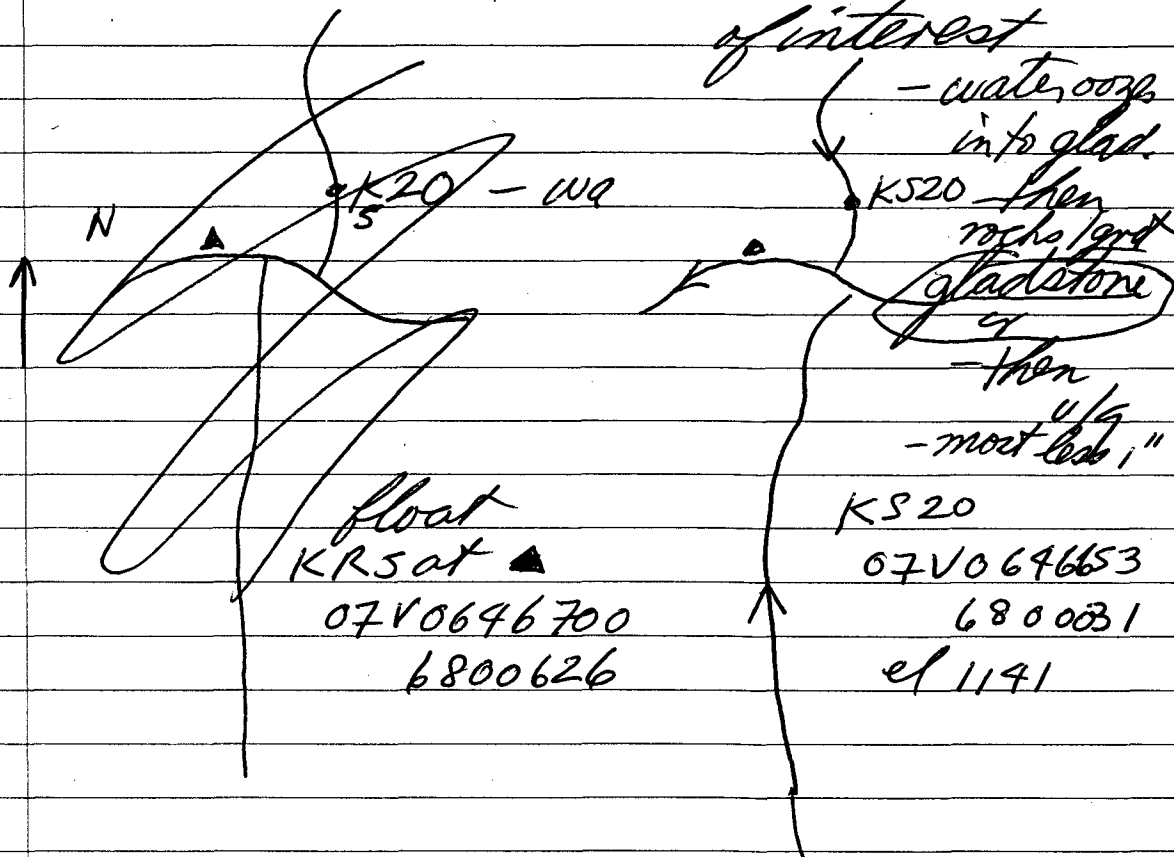 of interest
- water oozes
into glad.
K20 - wa
S
KS20 - then
N
rocks/grd
gladstone
cr
- then
u/g
- most less 1"
float
KR5 at ▲
07V0646700
6800626
KS20
07V0646653
6800031
el 1141